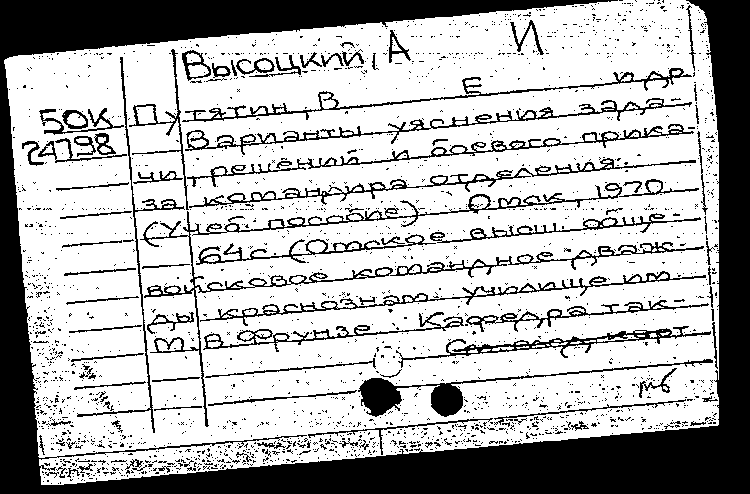 Высоцкий, А И
50К Путятин, В. Е и др
74798 Варианты уяснения зада-
чи, решений и боевого прика-
за командира отделения.
(Учеб. пособие) Омск, 1970
64с. (Омское высш. обще-
войсковое командное дваж-
ды краснознам. училище им.
М. В Фрунзе. Кафедра так-
См. след. карт